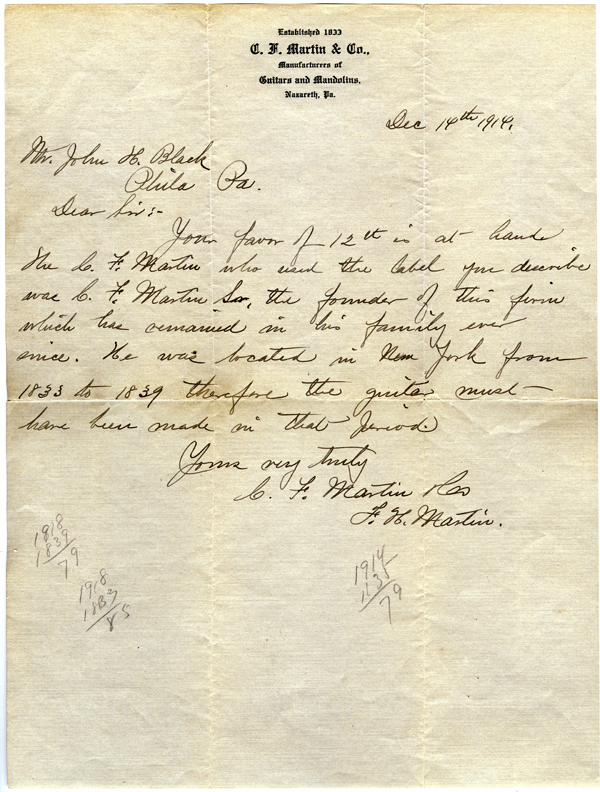 Established 1833
C. F. Martin & Co.,
Manufacturers of
Guitars and Mandolins,
Nazareth, Pa.
Dec 14th 1914.
Mr. John H. Black
Phila Pa.
Dear Sir:-
Your favor of 12th is at hand
The C. F. Martin who used the label you describe
was C. F. Martin Sr, the founder of this firm
which has remained in his family ever
since. He was located in New York from
1833 to 1839 therefore the guitar must
have been made in that period.
Yours very truly
C. F. Martin & Co
F. H. Martin.
1918
1839
79
1918
1833
85
1914
79